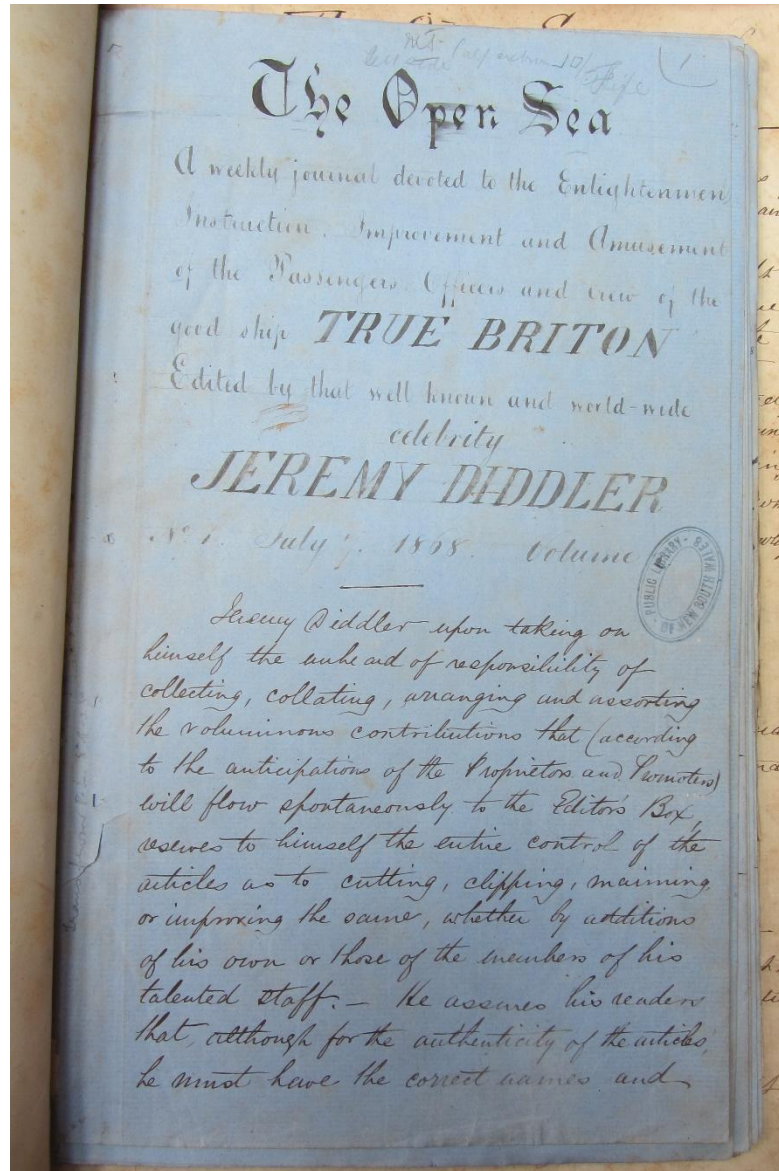 1
The Open Sea
A weekly journal devoted to the Enlightenmen
Instruction. Improvement and Amusement
of the Passengers. Officers and crew of the
good ship TRUE BRITON
Edited by that well known and world-wide
celebrity
JEREMY DIDDLER
No 1. July 7. 1868. Volume
PUBLIC LIBRARY
OF NEW SOUTH WALES
Jeremy Diddler upon taking on
himself the unheard of responsibility of
collecting, collating, arranging and assorting
the voluminous contributions that (according
to the anticipations of the Proprietors and Promoters)
will flow spontaneously to the Editor's Box,
reserves to himself the entire control of the
articles as to cutting, clipping, maiming
or improving the same, whether by additions
of his own or those of the members of his
talented staff. — He assures his readers
that, although for the authenticity of the articles,
he must have the correct names and